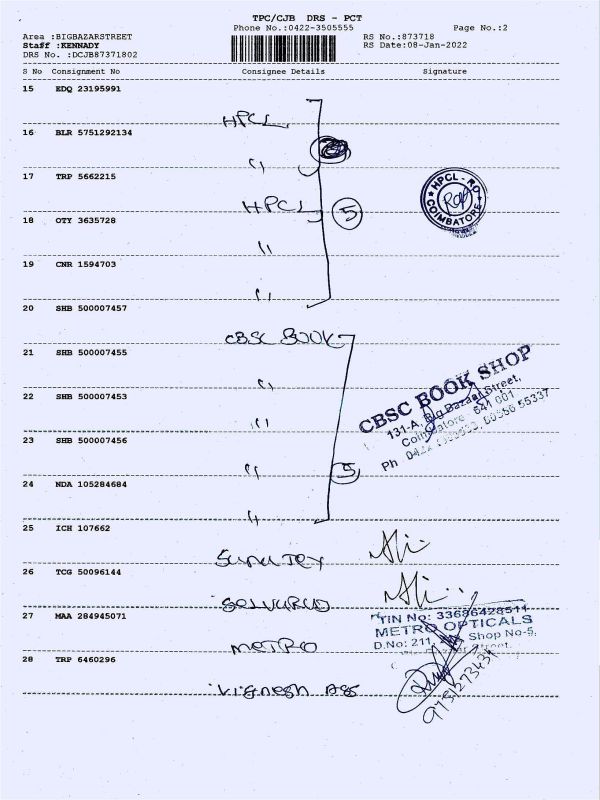 TPC/CJB DRS - PCT
Phone No.:0422-3505555 Page No.:2
Area :BIGBAZARSTREET RS No.:873718
Staff :KENNADY RS Date:08-Jan-2022
DRS No. :DCJB87371802
S No Consignment No Consignee Details Signature
15 EDQ 23195991
HPCL
16 BLR 5751292134
"
17 TRP 5662215
HPCL
5
HPCL - RO
COIMBATORE
18 OTY 3635728
"
19 CNR 1594703
"
20 SHB 500007457
CBSC BOOK
21 SHB 500007455
"
CBSC BOOK SHOP
131-A, Big Bazaar Street,
Coimbatore - 641 001
22 SHB 500007453
"
23 SHB 500007456
"
5
24 NDA 105284684
"
25 ICH 107662
26 TCG 50096144
27 MAA 284945071
METRO
TIN No: 33686428511
METRO OPTICALS
D.No: 211, Shop No-5,
28 TRP 6460296
Vignesh Ags